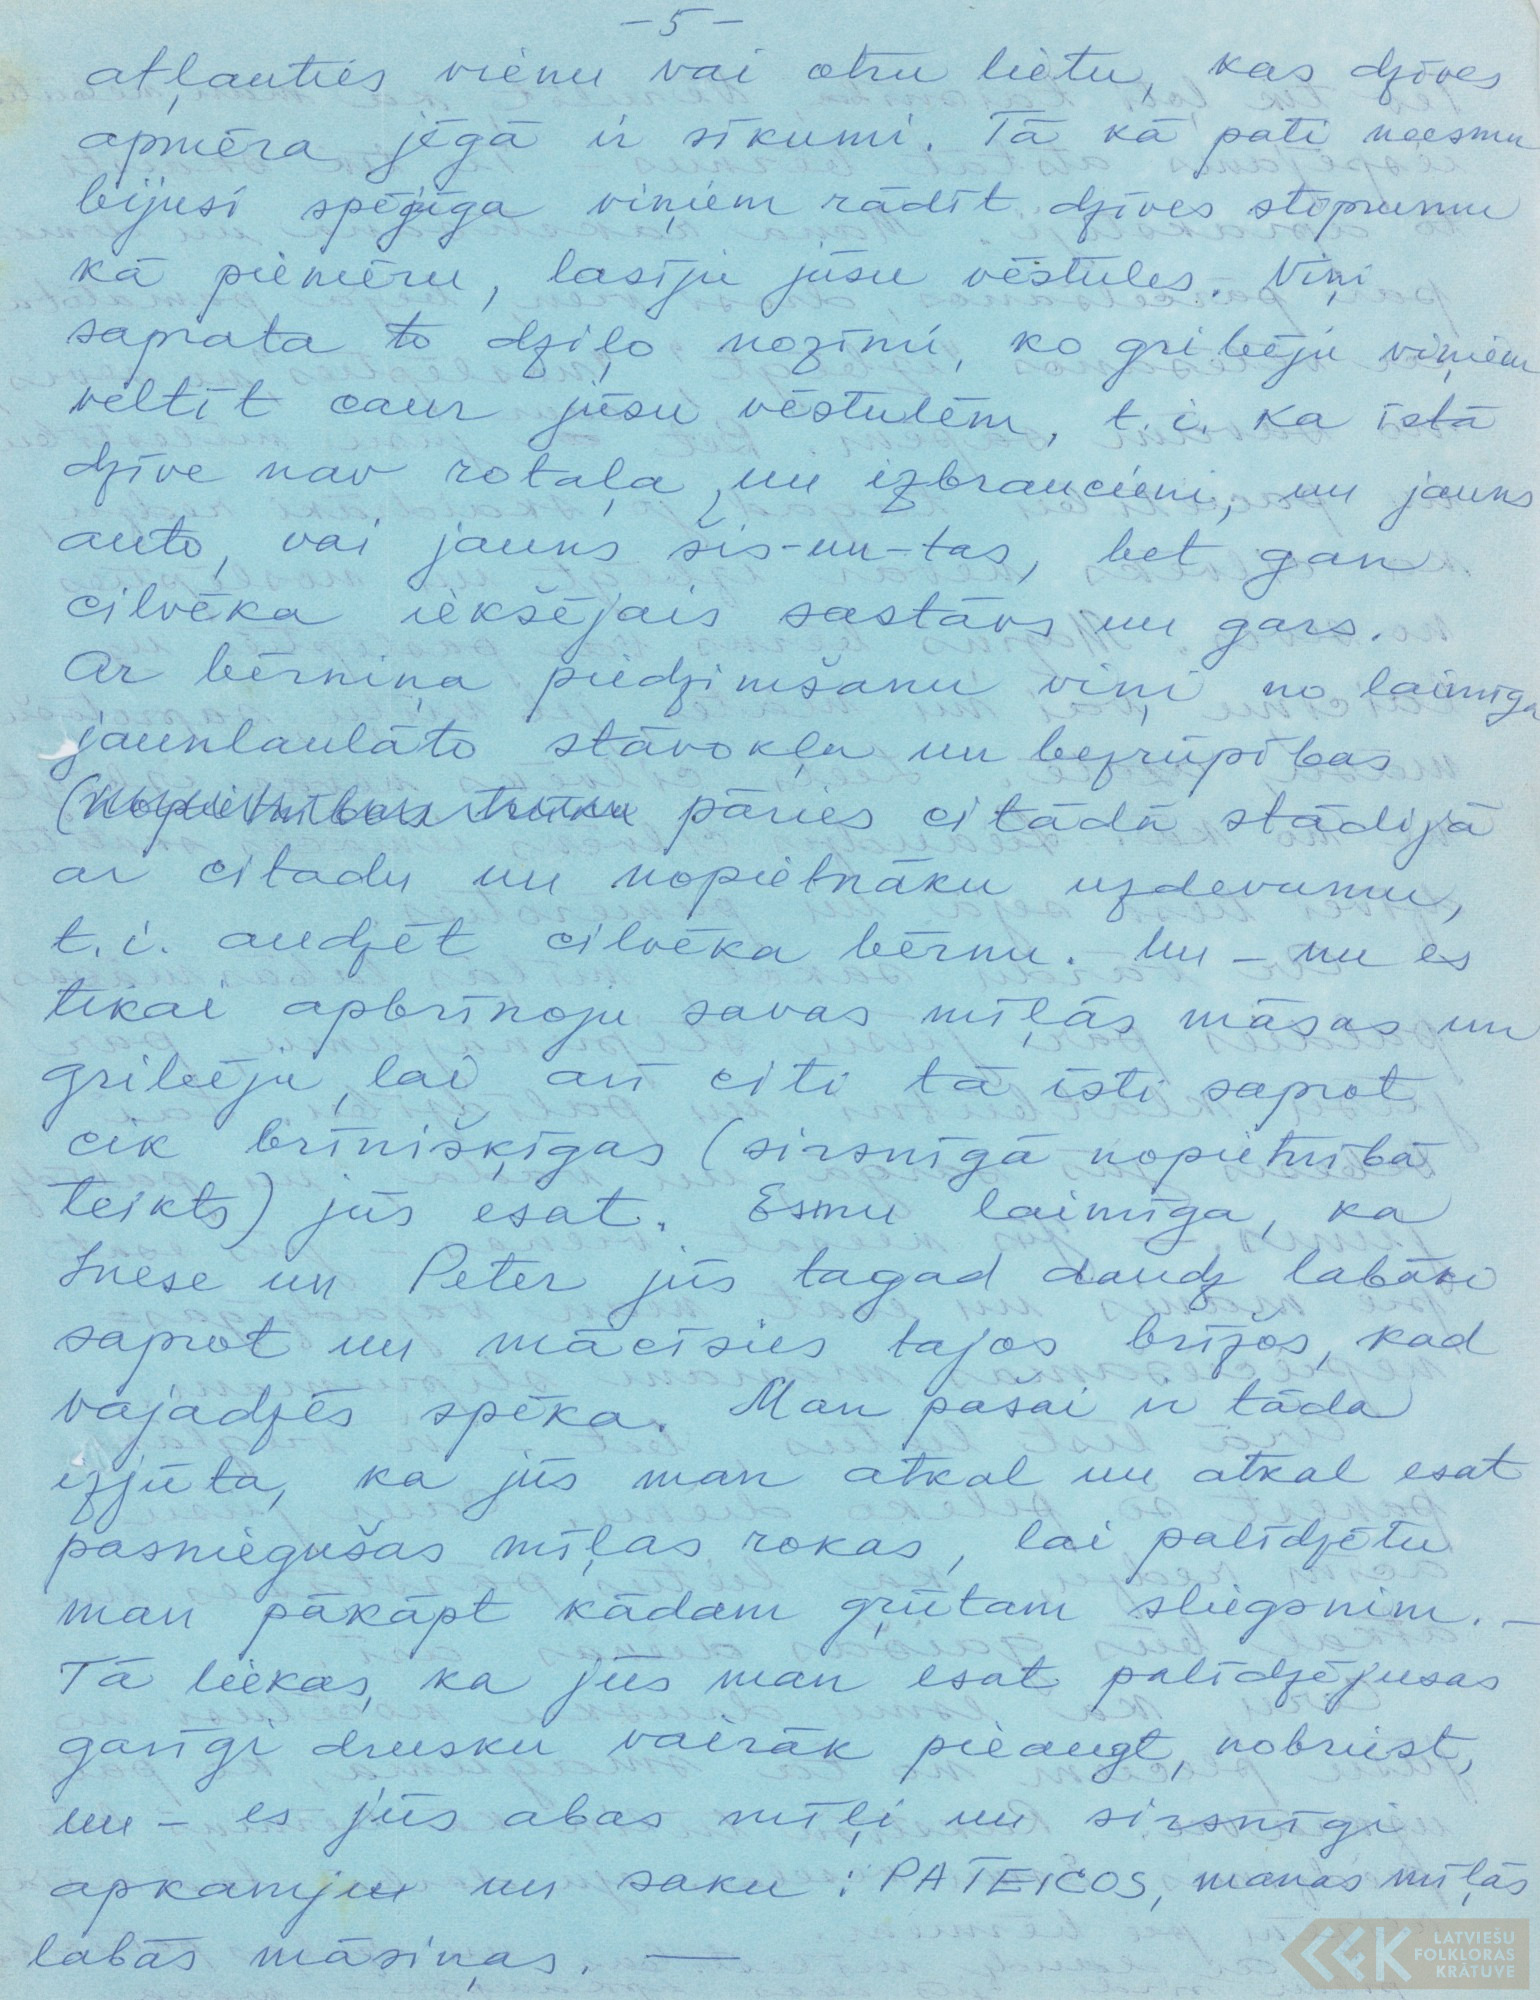 -5-
atļauties vienu vai otru lietu, kas dzīves
apmēra jēgā ir sīkumi. Tā kā pati neesmu
bijusi spējīga viņiem rādīt dzīves stiprumu
kā piemēru, lasīju jūsu vēstules. Viņi
saprata to dziļo nozīmi, ko gribēju viņiem
veltīt caur jūsu vēstulēm, t.i. ka īstā
dzīve nav rotaļa un izbraucieni, un jauns
auto, vai jauns šis-un-tas, bet gan
cilvēka iekšējais sastāvs un gars.
Ar bērniņa piedzimšanu viņi no laimīga
jaunlaulāto stāvokļa un bezrūpības
(nopietnības trūku pāries citādā stādijā
ar citadu un nopietnāku uzdevumu,
t.i. audzēt cilvēka bērnu. Un - nu es
tikai apbrīnoju savas mīļās māsas un
gribēju, lai arī citi tā īsti saprot
cik brīnišķīgas (sirsnīgā nopietnībā
teikts) jūs esat. Esmu laimīga, ka
Inese un Peter jūs tagad daudz labāki
saprot un mācīsies tajos brīžos, kad
vajadzēs spēka. Man pašai ir tāda
izjūta, ka jūs man atkal un atkal esat
pasniegušas mīļas rokas, lai palīdzētu
man pākāpt kādam grūtam sliegsnim. -
Tā liekas, ka jūs man esat palīdzējusas
garīgi drusku vairāk pieaugt, nobriest,
un - es jūs abas mīļi un sirsnīgi
apkampju un saku: PATEICOS, manas mīļās
labās māsiņas. —
LATVIEŠU
FOLKLORAS
KRĀTUVE